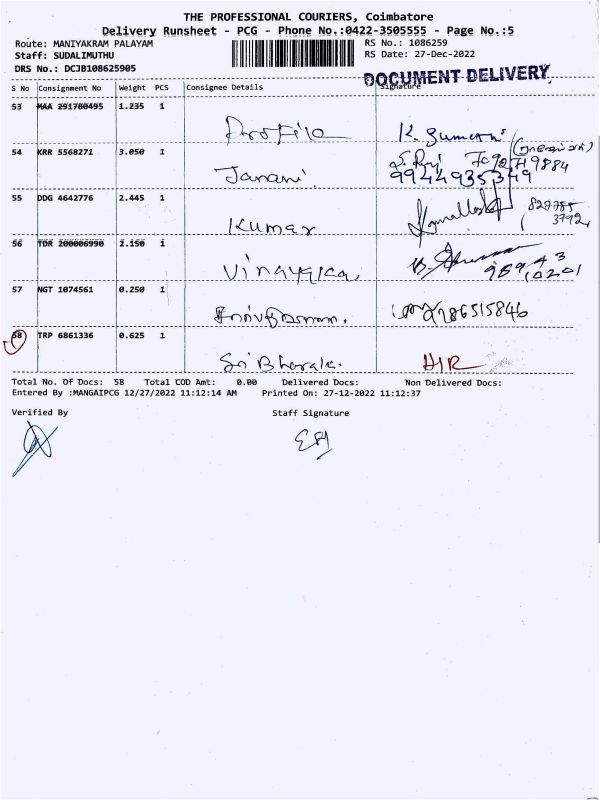 THE PROFESSIONAL COURIERS, Coimbatore
Delivery Runsheet - PCG - Phone No.:0422-3505555 - Page No.:5
Route: MANIYAKRAM PALAYAM
RS No.: 1086259
Staff: SUDALIMUTHU
RS Date: 27-Dec-2022
DRS No.: DCJB108625905
DOCUMENT DELIVERY
S No Consignment No Weight PCS Consignee Details Signature
53 MAA 291780495 1.235 1
Profile K. Sumathi
54 KRR 5568271 3.050 1
Janani. 9944935349
55 DDG 4642776 2.445 1
Kumar
56 TDR 200006990 2.150 1
Vinayaga
57 NGT 1074561 0.250 1
9786515846
58 TRP 6861336 0.625 1
Sri Bharala. HIR
Total No. Of Docs: 58 Total COD Amt: 0.00 Delivered Docs: Non Delivered Docs:
Entered By :MANGAIPCG 12/27/2022 11:12:14 AM Printed On: 27-12-2022 11:12:37
Verified By Staff Signature